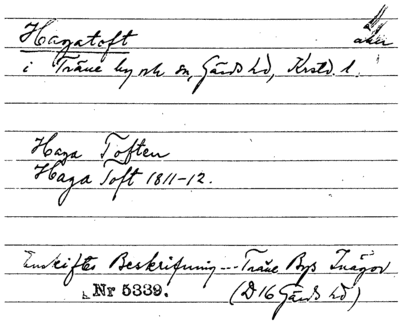 Hagatoft
åker
i Träne by ok sn, Gärds hd, Krstd. l.
Haga Toften
Haga Toft 1811-12.
Enskiftes Beskrifning --- Träne Bys Inägor
Nr 5339. (D16 Gärds hd)